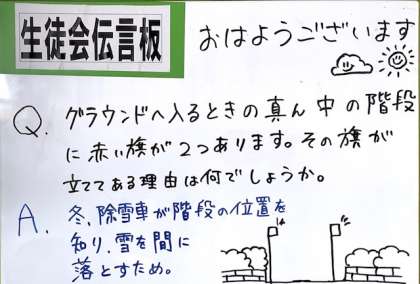 生徒会伝言板
おはようございます
Q. グラウンドへ入るときの真ん中の階段
に赤い旗が2つあります。その旗が
立ててある理由は何でしょうか。
A. 冬、除雪車が階段の位置を
知り、雪を間に
落とすため。